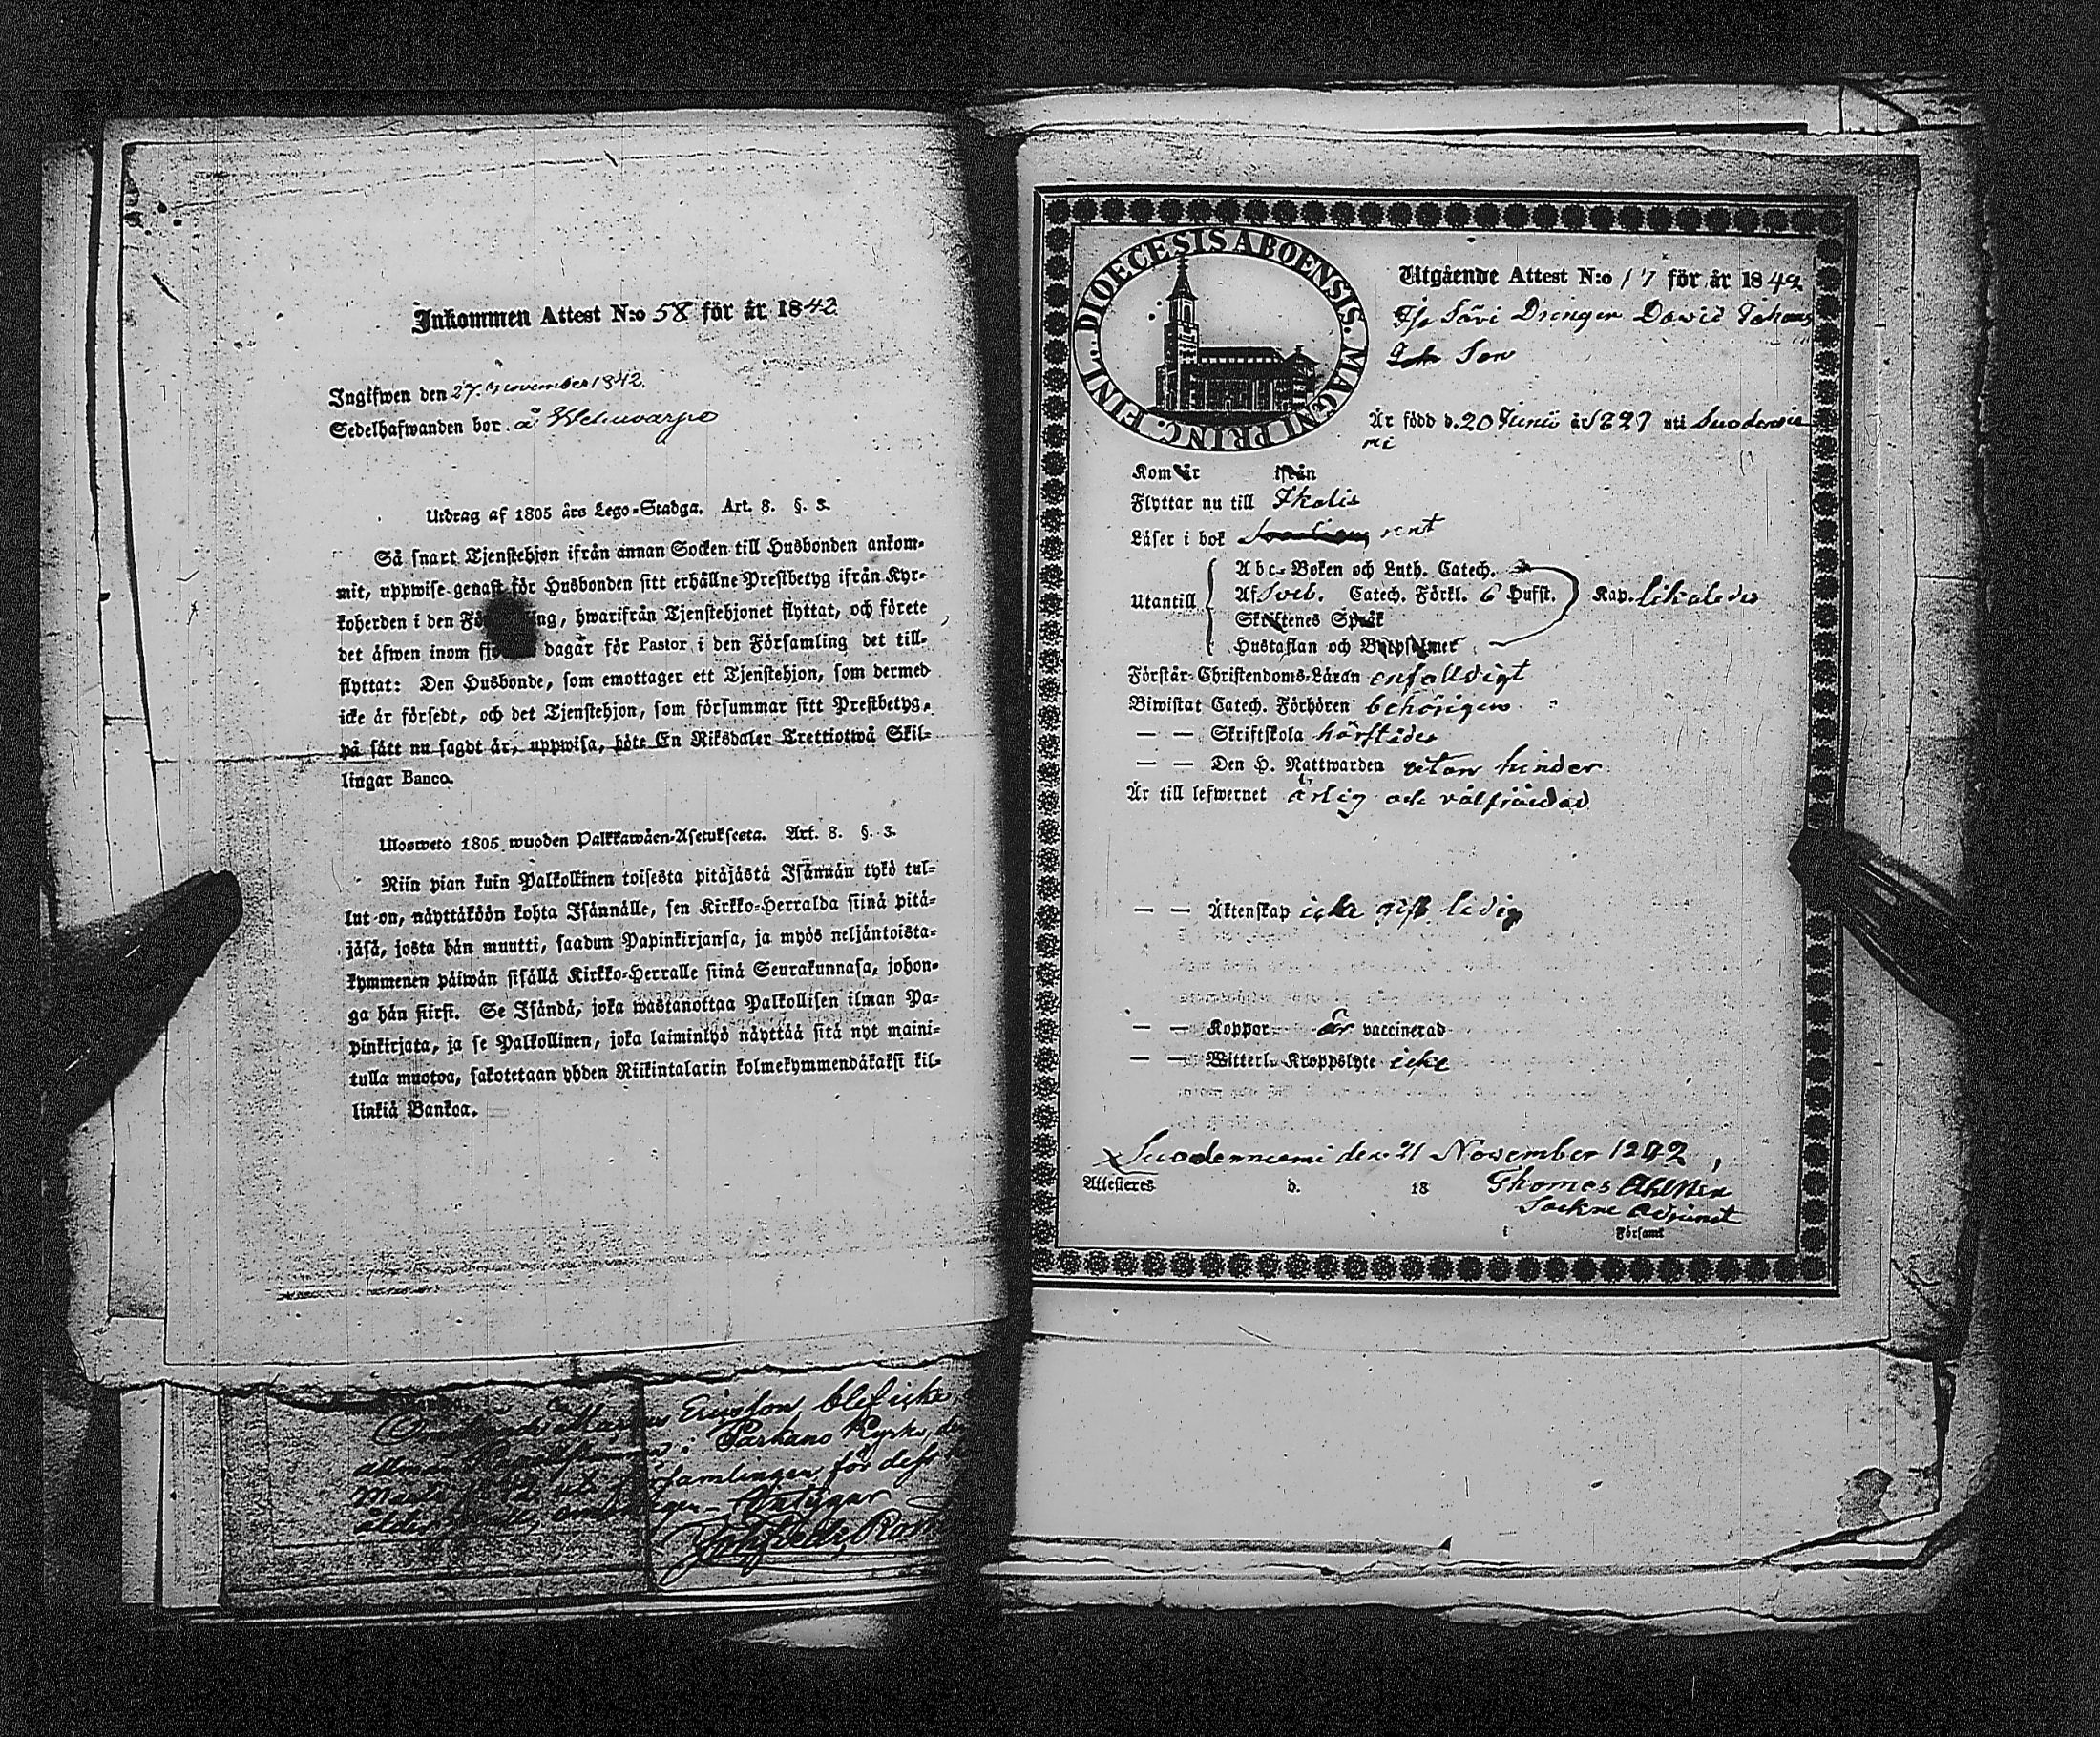 Inkommen Attest N:o 58 för år 1842
Ingifwen den 27. November 1842.
Sedelhafwanden bor å
Utdrag af 1805 års Lego-Stadga. Art. 8. §. 3.
Så snart Tjenstehjon ifrån annan Socken till Husbonden ankom-
mit, uppwise genast för Husbonden sitt erhållne Prestbetyg ifrån Kyr-
koherden i den Fö ing, hwarifrån Tjenstehjonet flyttat, och förete
det äfwen inom dagar för Pastor i den Församling det till-
flyttat: Den Husbonde, som emottager ett Tjenstehjon, som dermed
icke är försedt, och det Tjenstehjon, som försummar sitt Prestbetyg,
på sätt nu sagdt är, uppwisa, böte En Riksdaler Trettiotwå Skil-
lingar Banco.
Ulosweto 1805 wuoden Palkkawäen-Asetuksesta. Art. 8. §. 3.
Niin pian kuin Palkollinen toisesta pitäjästä Isännän tykö tul-
lut on, näyttäköön kohta Isännälle, sen Kirkko-Herralda siinä pitä-
jäsä, josta hän muutti, saadun Papinkirjansa, ja myös neljäntoista-
kymmenen päiwän sisällä Kirkko-Herralle siinä Seurakunnasa, johon-
ga hän siirsi. Se Isändä, joka wastanottaa Palkollisen ilman Pa-
pinkirjata, ja se Palkollinen, joka laiminlyö näyttää sitä nyt maini-
tulla muotoa, sakotetaan yhden Riikintalarin kolmekymmendäkaksi kil-
lingiä Bankoa.
Ericsson blef icke
i Parkano Kyrka,
församlingen för dess
Betygar
DIOECESIS ABOENSIS. MAGNI PRINC. FINL.
Utgående Attest N:o 17 för år 1842
Drengen David Johans
Son
Är född d. 20 Junii år 1827 uti Suodennie
mi
Kom år ifrån
Flyttar nu till Ikalis
Läser i bok rent
Abc-Boken och Luth. Catech.
Utantill Af Sveb. Catech. Förkl. 6 Hufst. Kap. likaledes
Skriftenes Språk
Hustaflan och Botpsalmer
Förstår Christendoms-Läran enfaldigt
Biwistat Catech. Förhören behörigen
— — Skriftskola härstädes
— — Den H. Nattwarden utan hinder
Är till lefwernet ärlig och välfräjdad
— — Äktenskap icke gift ledig
— — Koppor Är vaccinerad
— — Witterl. Kroppslyte icke
Suodenniemi den 21 November 1842,
Attesteres d. 18 Thomas
Sockne Adjunct
i Församl